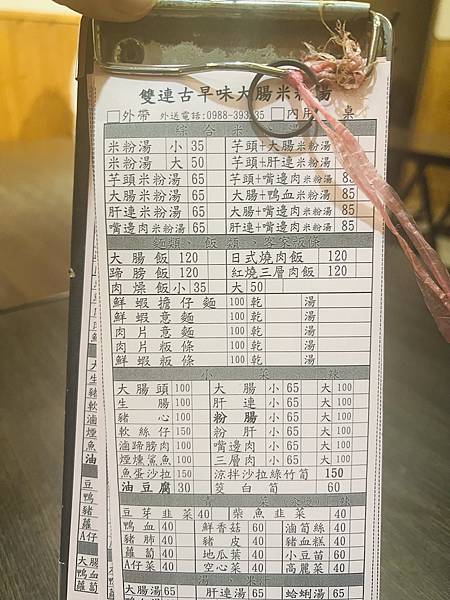 雙連古早味大腸米粉湯
□外帶 外送電話:0988-393 35 □內用 桌
綜合米
米粉湯 小 35 芋頭+大腸米粉湯
米粉湯 大 50 芋頭+肝連米粉湯
芋頭米粉湯 65 芋頭+嘴邊肉米粉湯 85
大腸米粉湯 65 大腸+鴨血米粉湯 85
肝連米粉湯 65 大腸+肝連米粉湯 85
嘴邊肉米粉湯 65 大腸+嘴邊肉米粉湯 85
麵類、飯類、客家粄條
大腸飯 120 日式燒肉飯 120
蹄膀飯 120 紅燒三層肉飯 120
肉燥飯 小 35 大 50
鮮蝦擔仔麵 100 乾 湯
鮮蝦意麵 100 乾 湯
肉片意麵 100 乾 湯
肉片粄條 100 乾 湯
鮮蝦粄條 100 乾 湯
小菜
大腸頭 100 大腸 小 65 大 100
生腸 100 肝連 小 65 大 100
豬心 100 粉腸 小 65 大 100
軟絲仔 150 粉肝 小 65 大 100
滷蹄膀肉 100 嘴邊肉 小 65 大 100
煙燻鯊魚 100 三層肉 小 65 大 100
魚蛋沙拉 150 涼拌沙拉綠竹筍 150
油豆腐 30 筊白筍 60
豆芽韭菜 40 柴魚韭菜 40
鴨血 40 鮮香菇 60 滷筍絲 40
豬肺 40 豬皮 40 豬血糕 40
蘿蔔 40 地瓜葉 40 小豆苗 60
A仔菜 40 空心菜 40 高麗菜 40
湯
大腸湯 65 肝連湯 65 蛤蜊湯 65